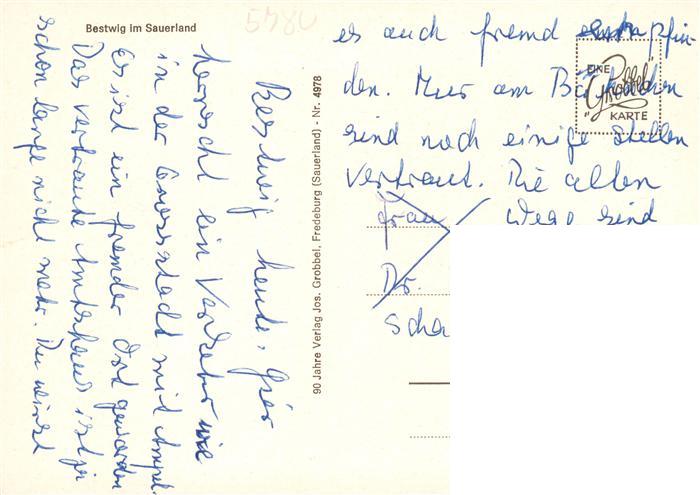 Bestwig im Sauerland
5484
Bestwig heute. Hier
herrscht ein Verkehr wie
in der Grossstadt mit Ampel.
Es ist ein fremder Ort geworden
Das vertraute Amtshaus ist ja
schon lange nicht mehr. Du wirst
90 Jahre Verlag Jos. Grobbel, Fredeburg (Sauerland) - Nr. 4978
es auch fremd empfin-
den. Nur am
sind noch einige Stellen
vertraut. Die alten
Wege sind
EINE
"Grobbel"
KARTE
Frau
Dr.
Scha